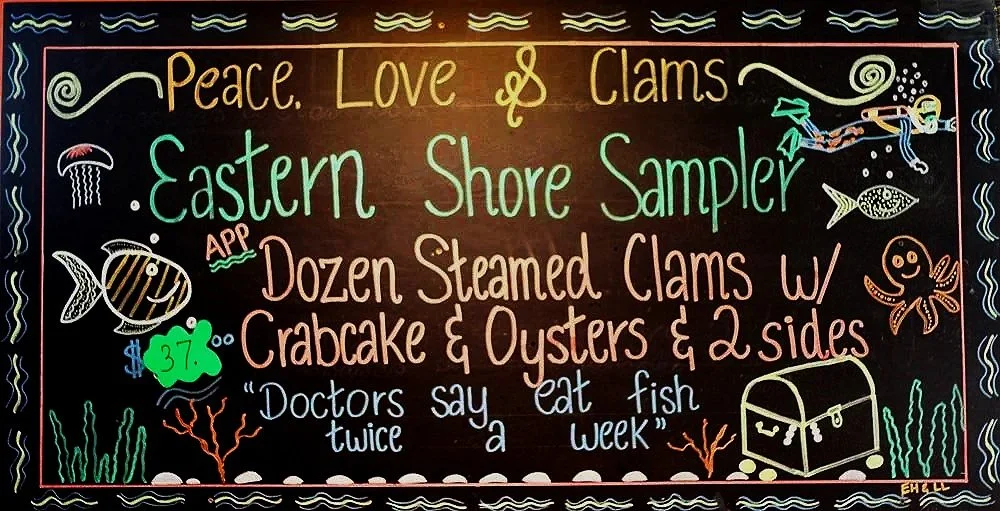 Peace. Love & Clams
Eastern Shore Sampler
APP
Dozen Steamed Clams w/
Crabcake & Oysters & 2 sides
$37.00
"Doctors say eat fish
twice a week"
EH & LL